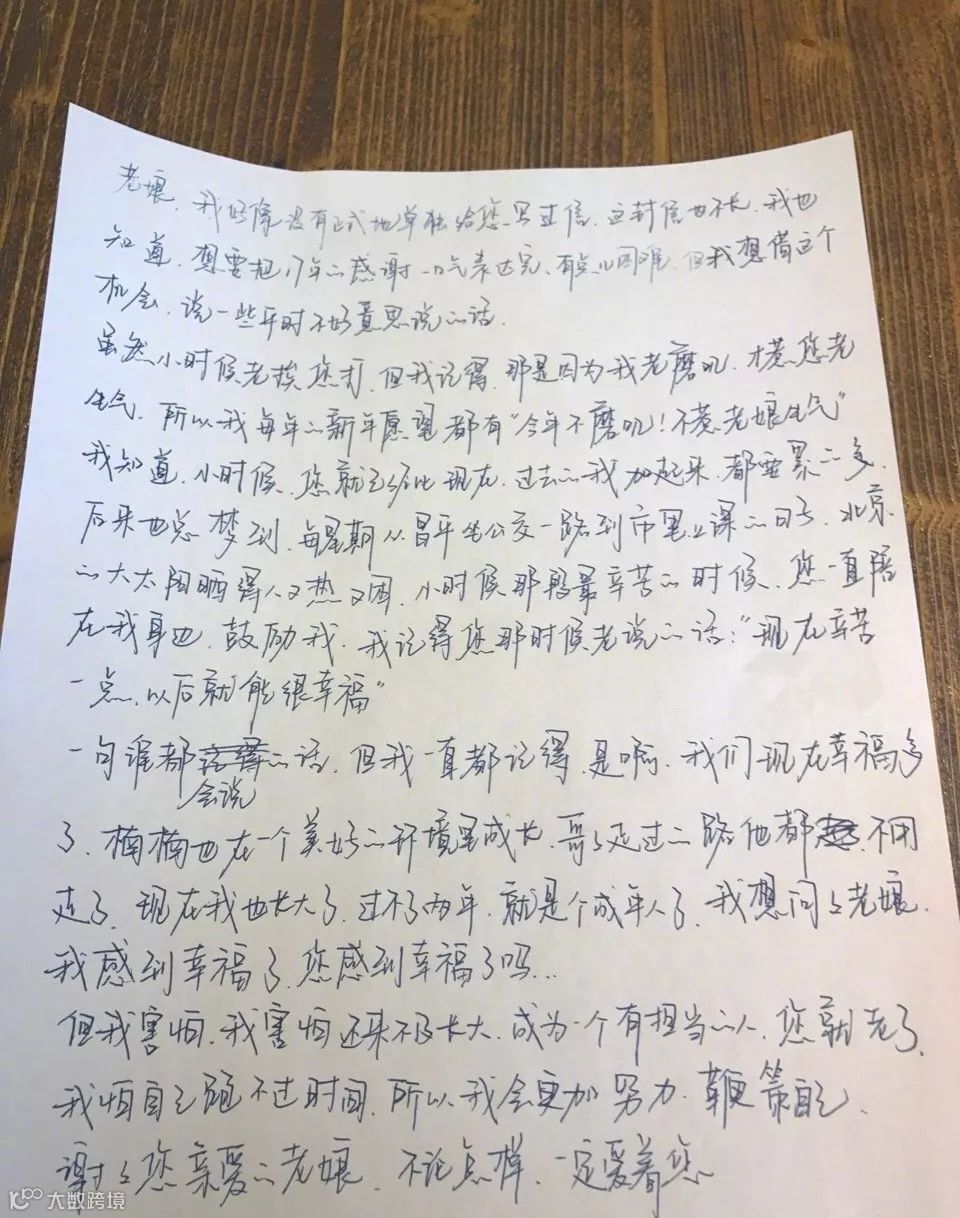 老娘、我好像没有正式地单独给您写过信、这封信也不长、我也
知道、想要把17年的感谢一口气表达完、有点儿困难、但我想借这个
机会、说一些平时不好意思说的话、
虽然小时候老挨您打、但我记得、那是因为我老磨叽、才惹您老
生气、所以我每年的新年愿望都有“今年不磨叽！不惹老娘生气”
我知道、小时候、您就已经比现在、过去的我加起来、都要累的多、
后来也总梦到、每星期从昌平坐公交一路到市里上课的日子、北京
的大太阳晒得人又热又困、小时候那段最辛苦的时候、您一直陪
在我身边、鼓励我、我记得您那时候老说的话：“现在辛苦
一点、以后就能很幸福”
一句谁都会说的话、但我一直都记得、是啊、我们现在幸福多
了、楠楠也在一个美好的环境里成长、哥哥走过的路他都不用
走了、现在我也长大了、过不了两年、就是个成年人了、我想问问老娘、
我感到幸福了、您感到幸福了吗...
但我害怕、我害怕还来不及长大、成为一个有担当的人、您就老了、
我怕自己跑不过时间、所以我会更加努力、鞭策自己、
谢谢您亲爱的老娘、不论怎样、一定爱着您
大数跨境